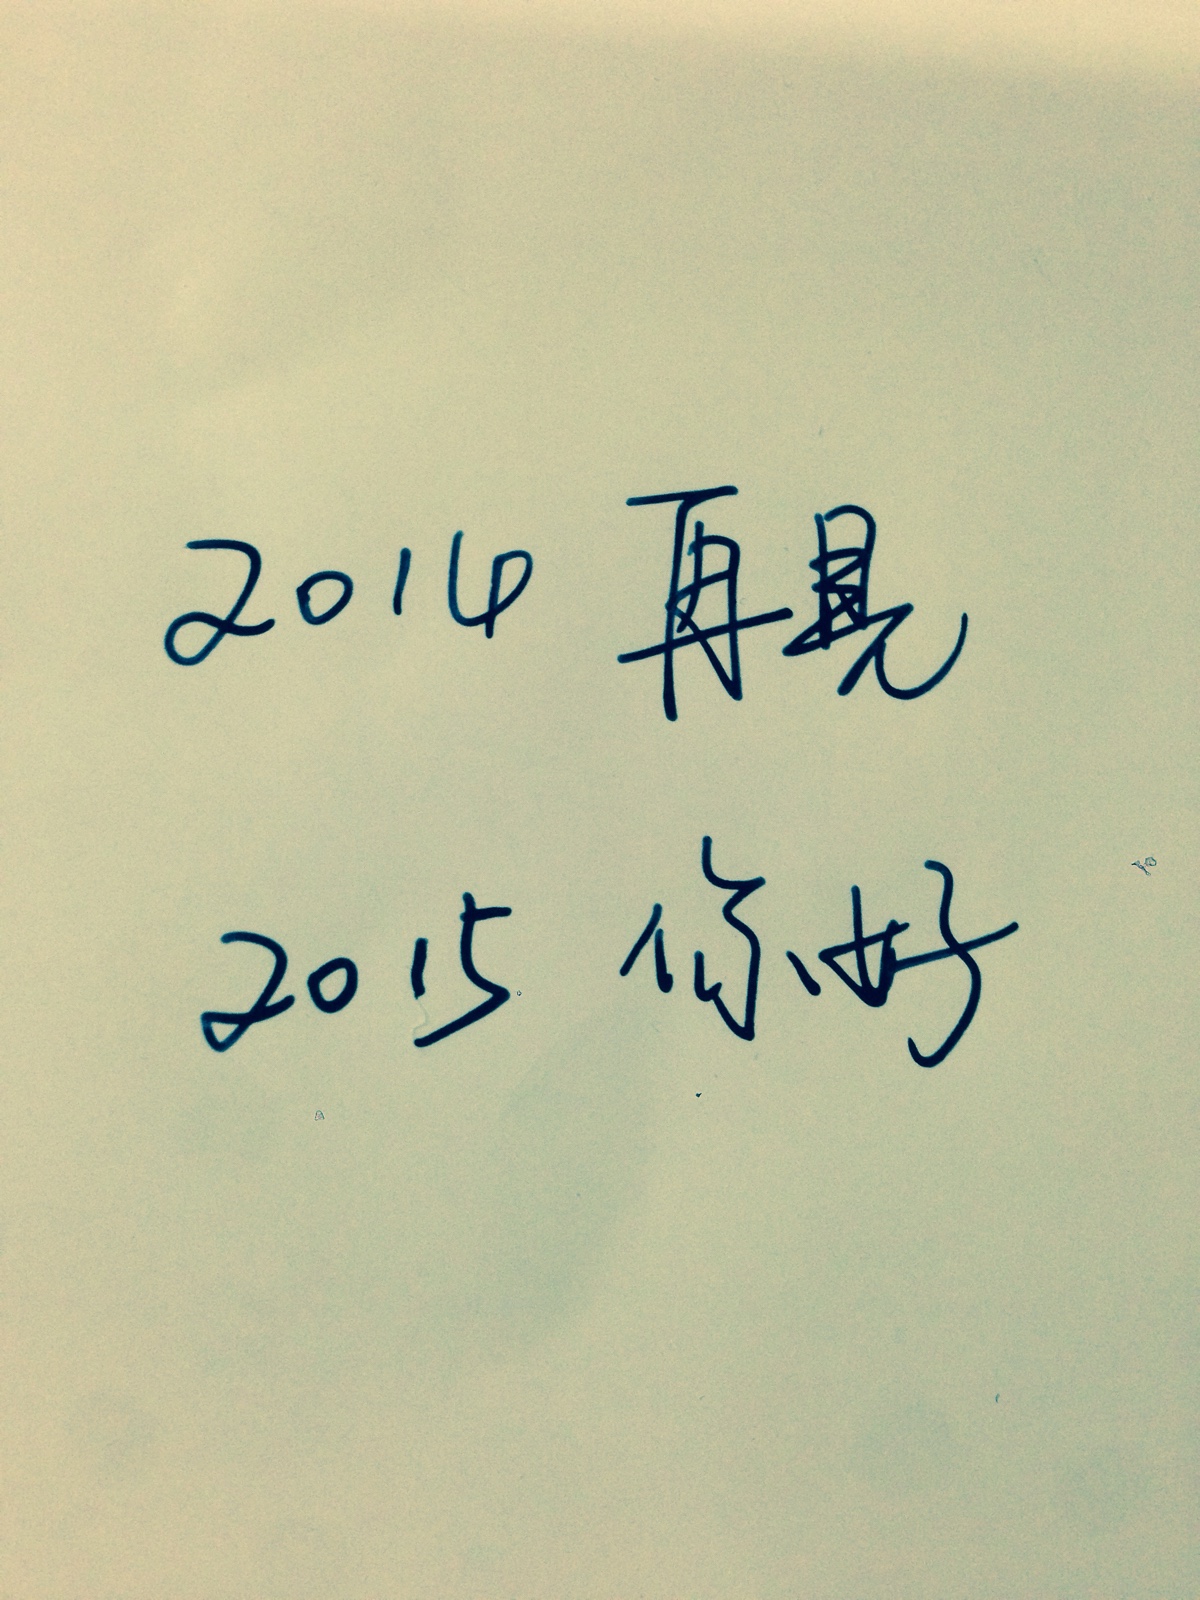 2014 再見
2015 你好